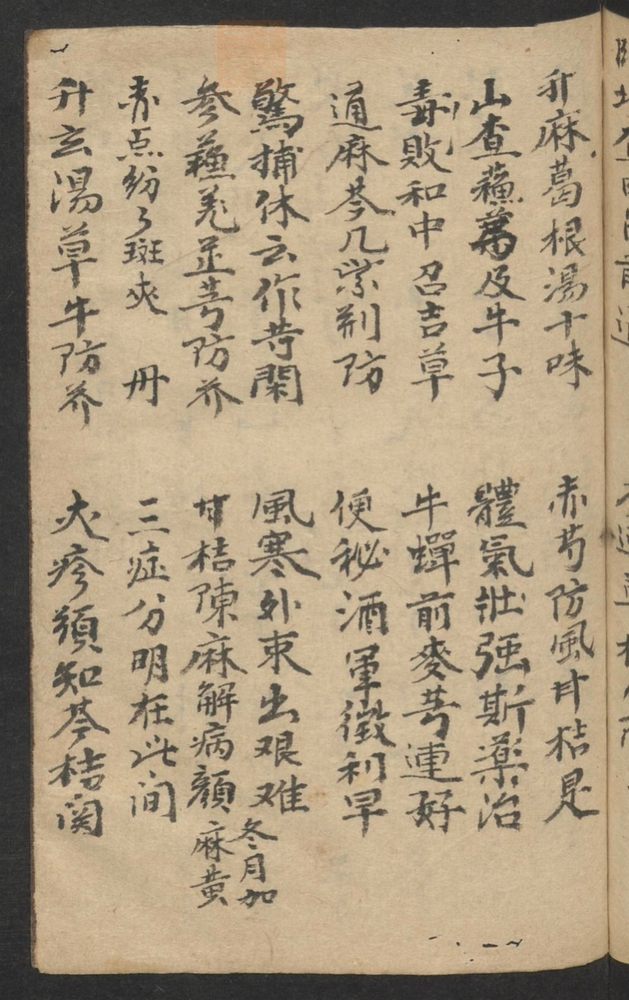 升麻葛根湯十味 赤芍防風甘桔是
山查蘓蔿及牛子 體氣壯强斯藥治
毒敗和中召吉草 牛蟬前麥芎連好
通麻芩几紫荆防 便秘酒軍微利早
驚捕休云作等閑 風寒外束出艰难
參蘓羌芷芎防芥 甘桔陳麻解病顔 冬月加麻黄
赤点紛々斑夾丹 三症分明在此间
升玄湯草牛防芥 火疹須知芩桔関